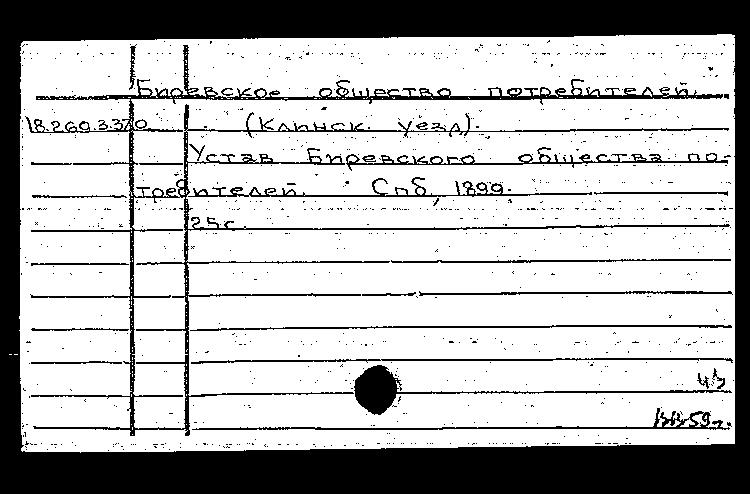 Биревское общество потребителей.
18.260.3.370 (Клинск. уезд).
Устав Биревского общества по-
требителей. Спб, 1899.
25с.